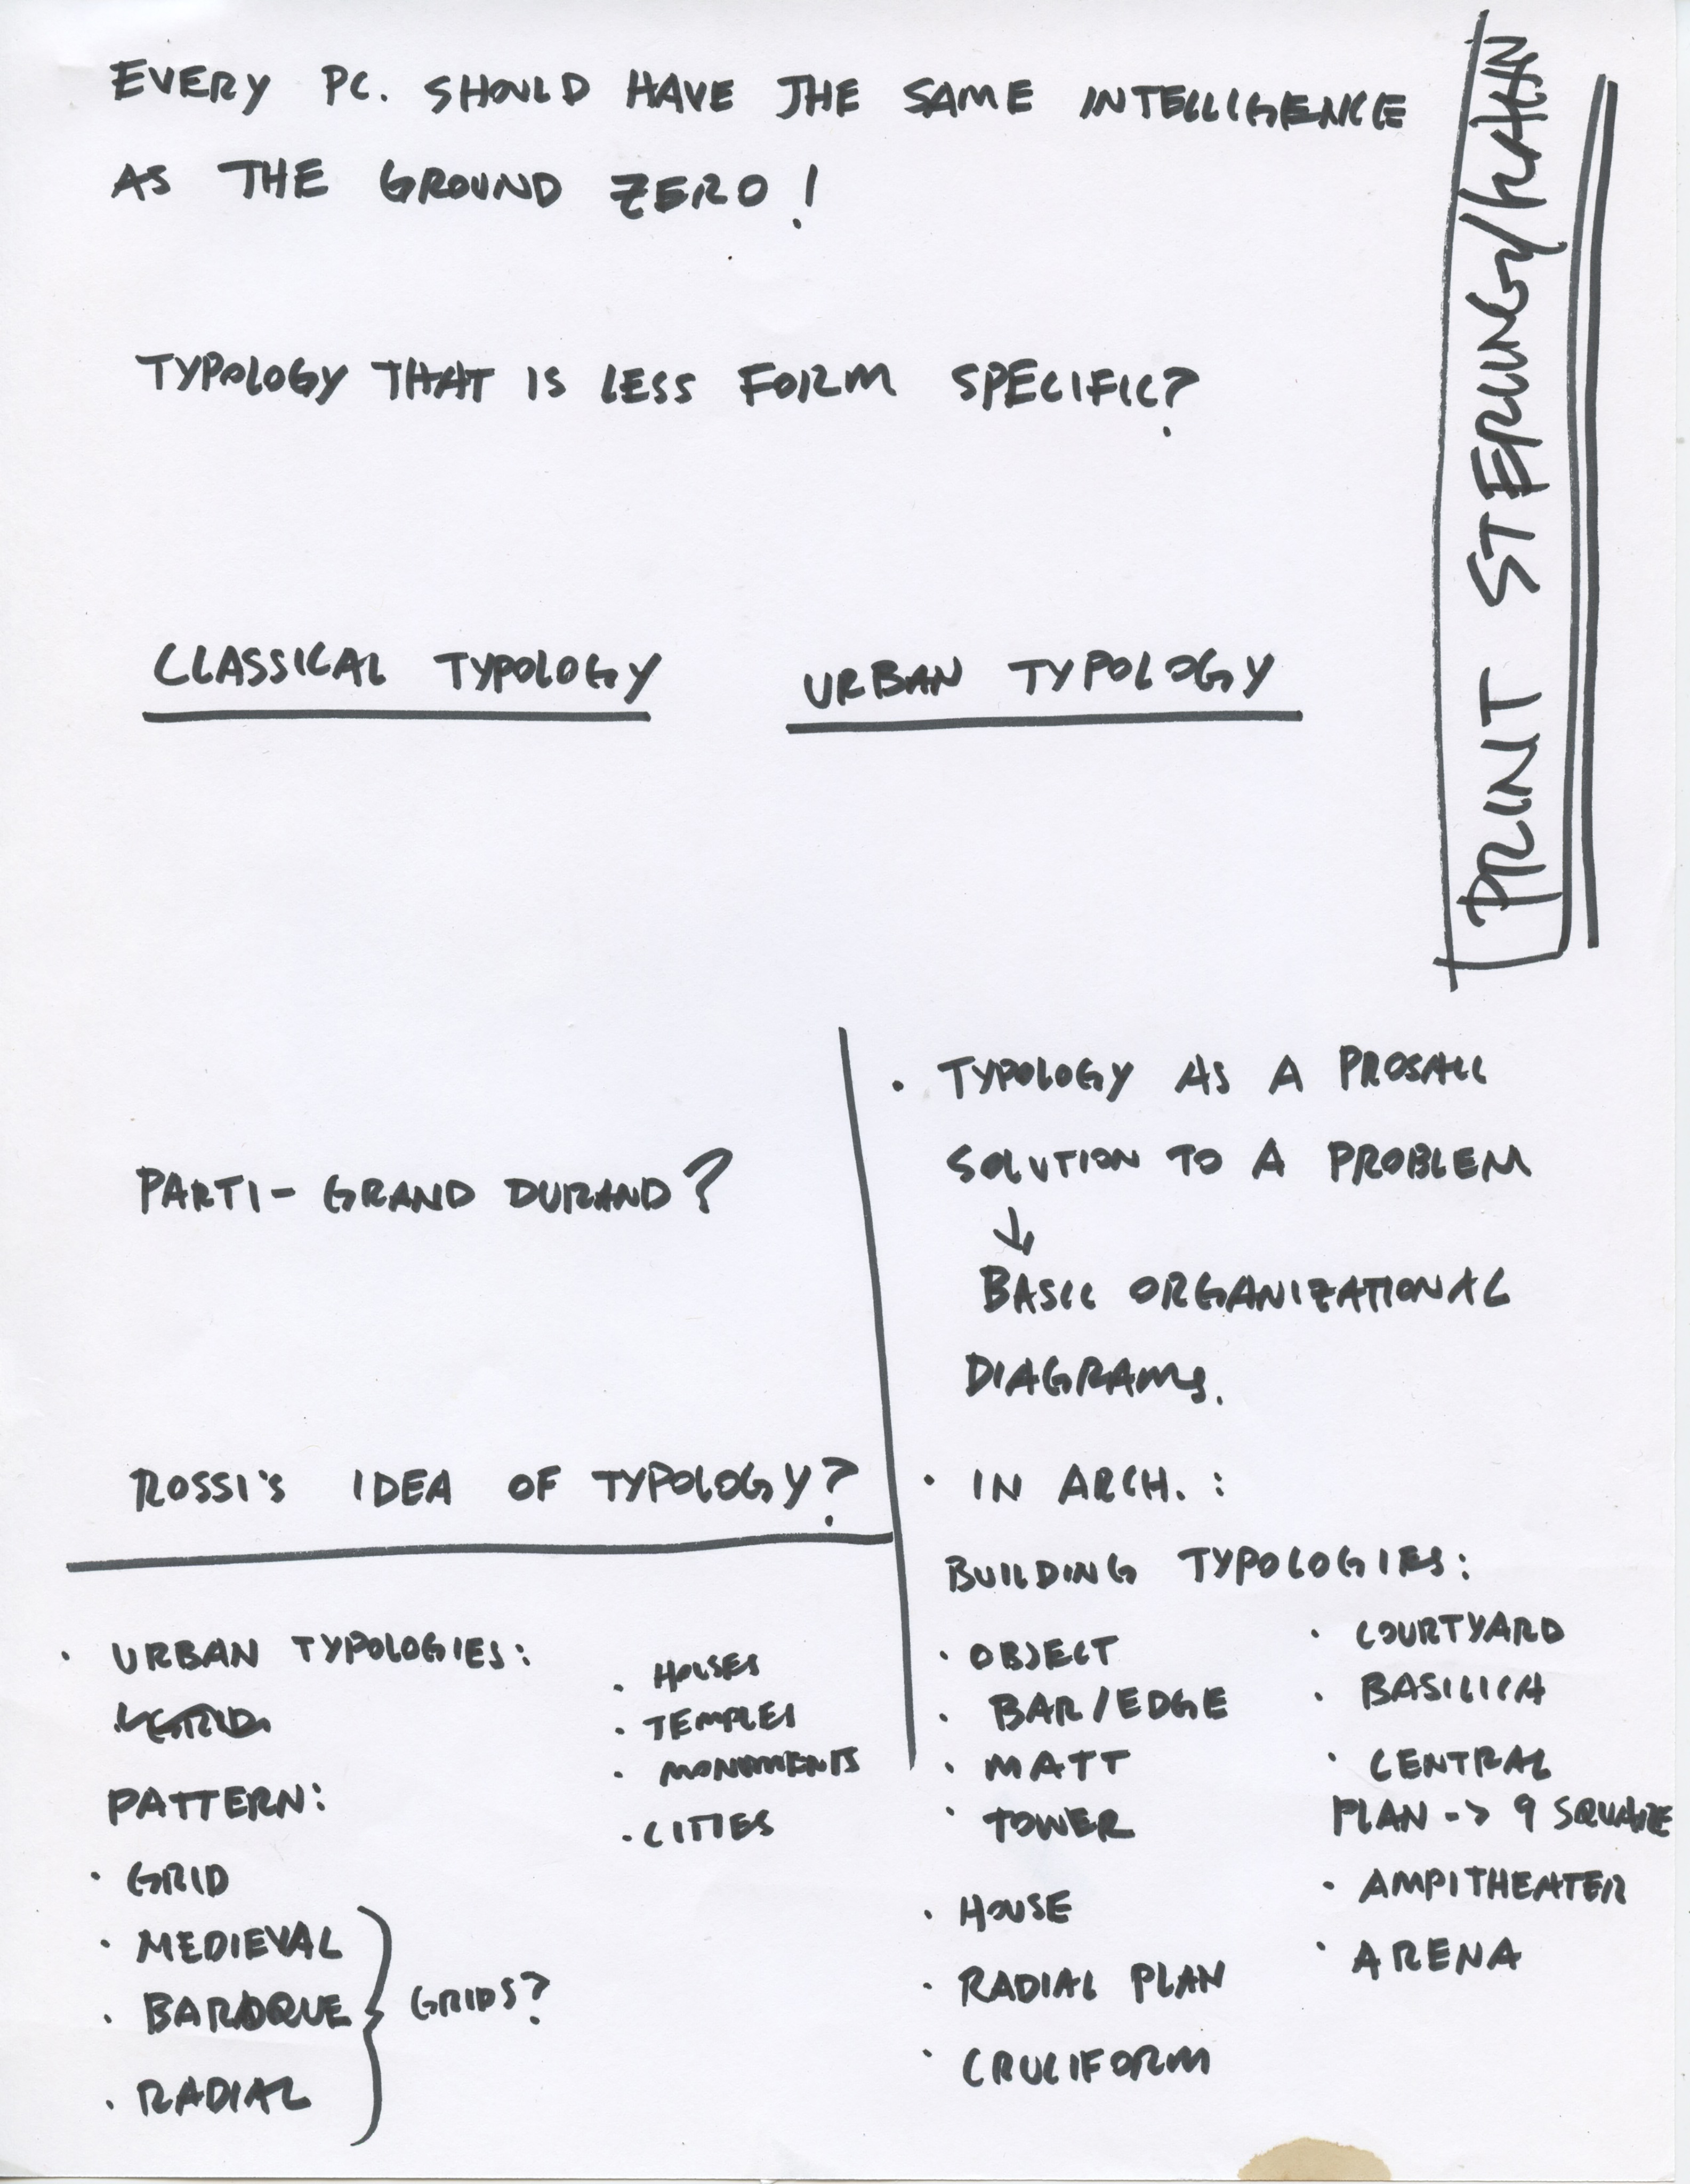 EVERY PC. SHOULD HAVE THE SAME INTELLIGENCE
AS THE GROUND ZERO!
TYPOLOGY THAT IS LESS FORM SPECIFIC?
PRINT STERLING/KAHN
CLASSICAL TYPOLOGY
URBAN TYPOLOGY
PARTI - GRAND DURAND?
ROSSI'S IDEA OF TYPOLOGY?
• TYPOLOGY AS A
SOLUTION TO A PROBLEM
↓
BASIC ORGANIZATIONAL
DIAGRAMS.
• IN ARCH. :
BUILDING TYPOLOGIES:
• OBJECT
• BAR/EDGE
• MATT
• TOWER
• HOUSE
• RADIAL PLAN
• CRUCIFORM
• COURTYARD
• BASILICA
• CENTRAL
PLAN -> 9 SQUARE
• AMPITHEATER
• ARENA
• URBAN TYPOLOGIES:
GRID
PATTERN:
• GRID
• MEDIEVAL
• BAROQUE
• RADIAL
GRIDS?
• HOUSES
• TEMPLES
• MONUMENTS
• CITIES